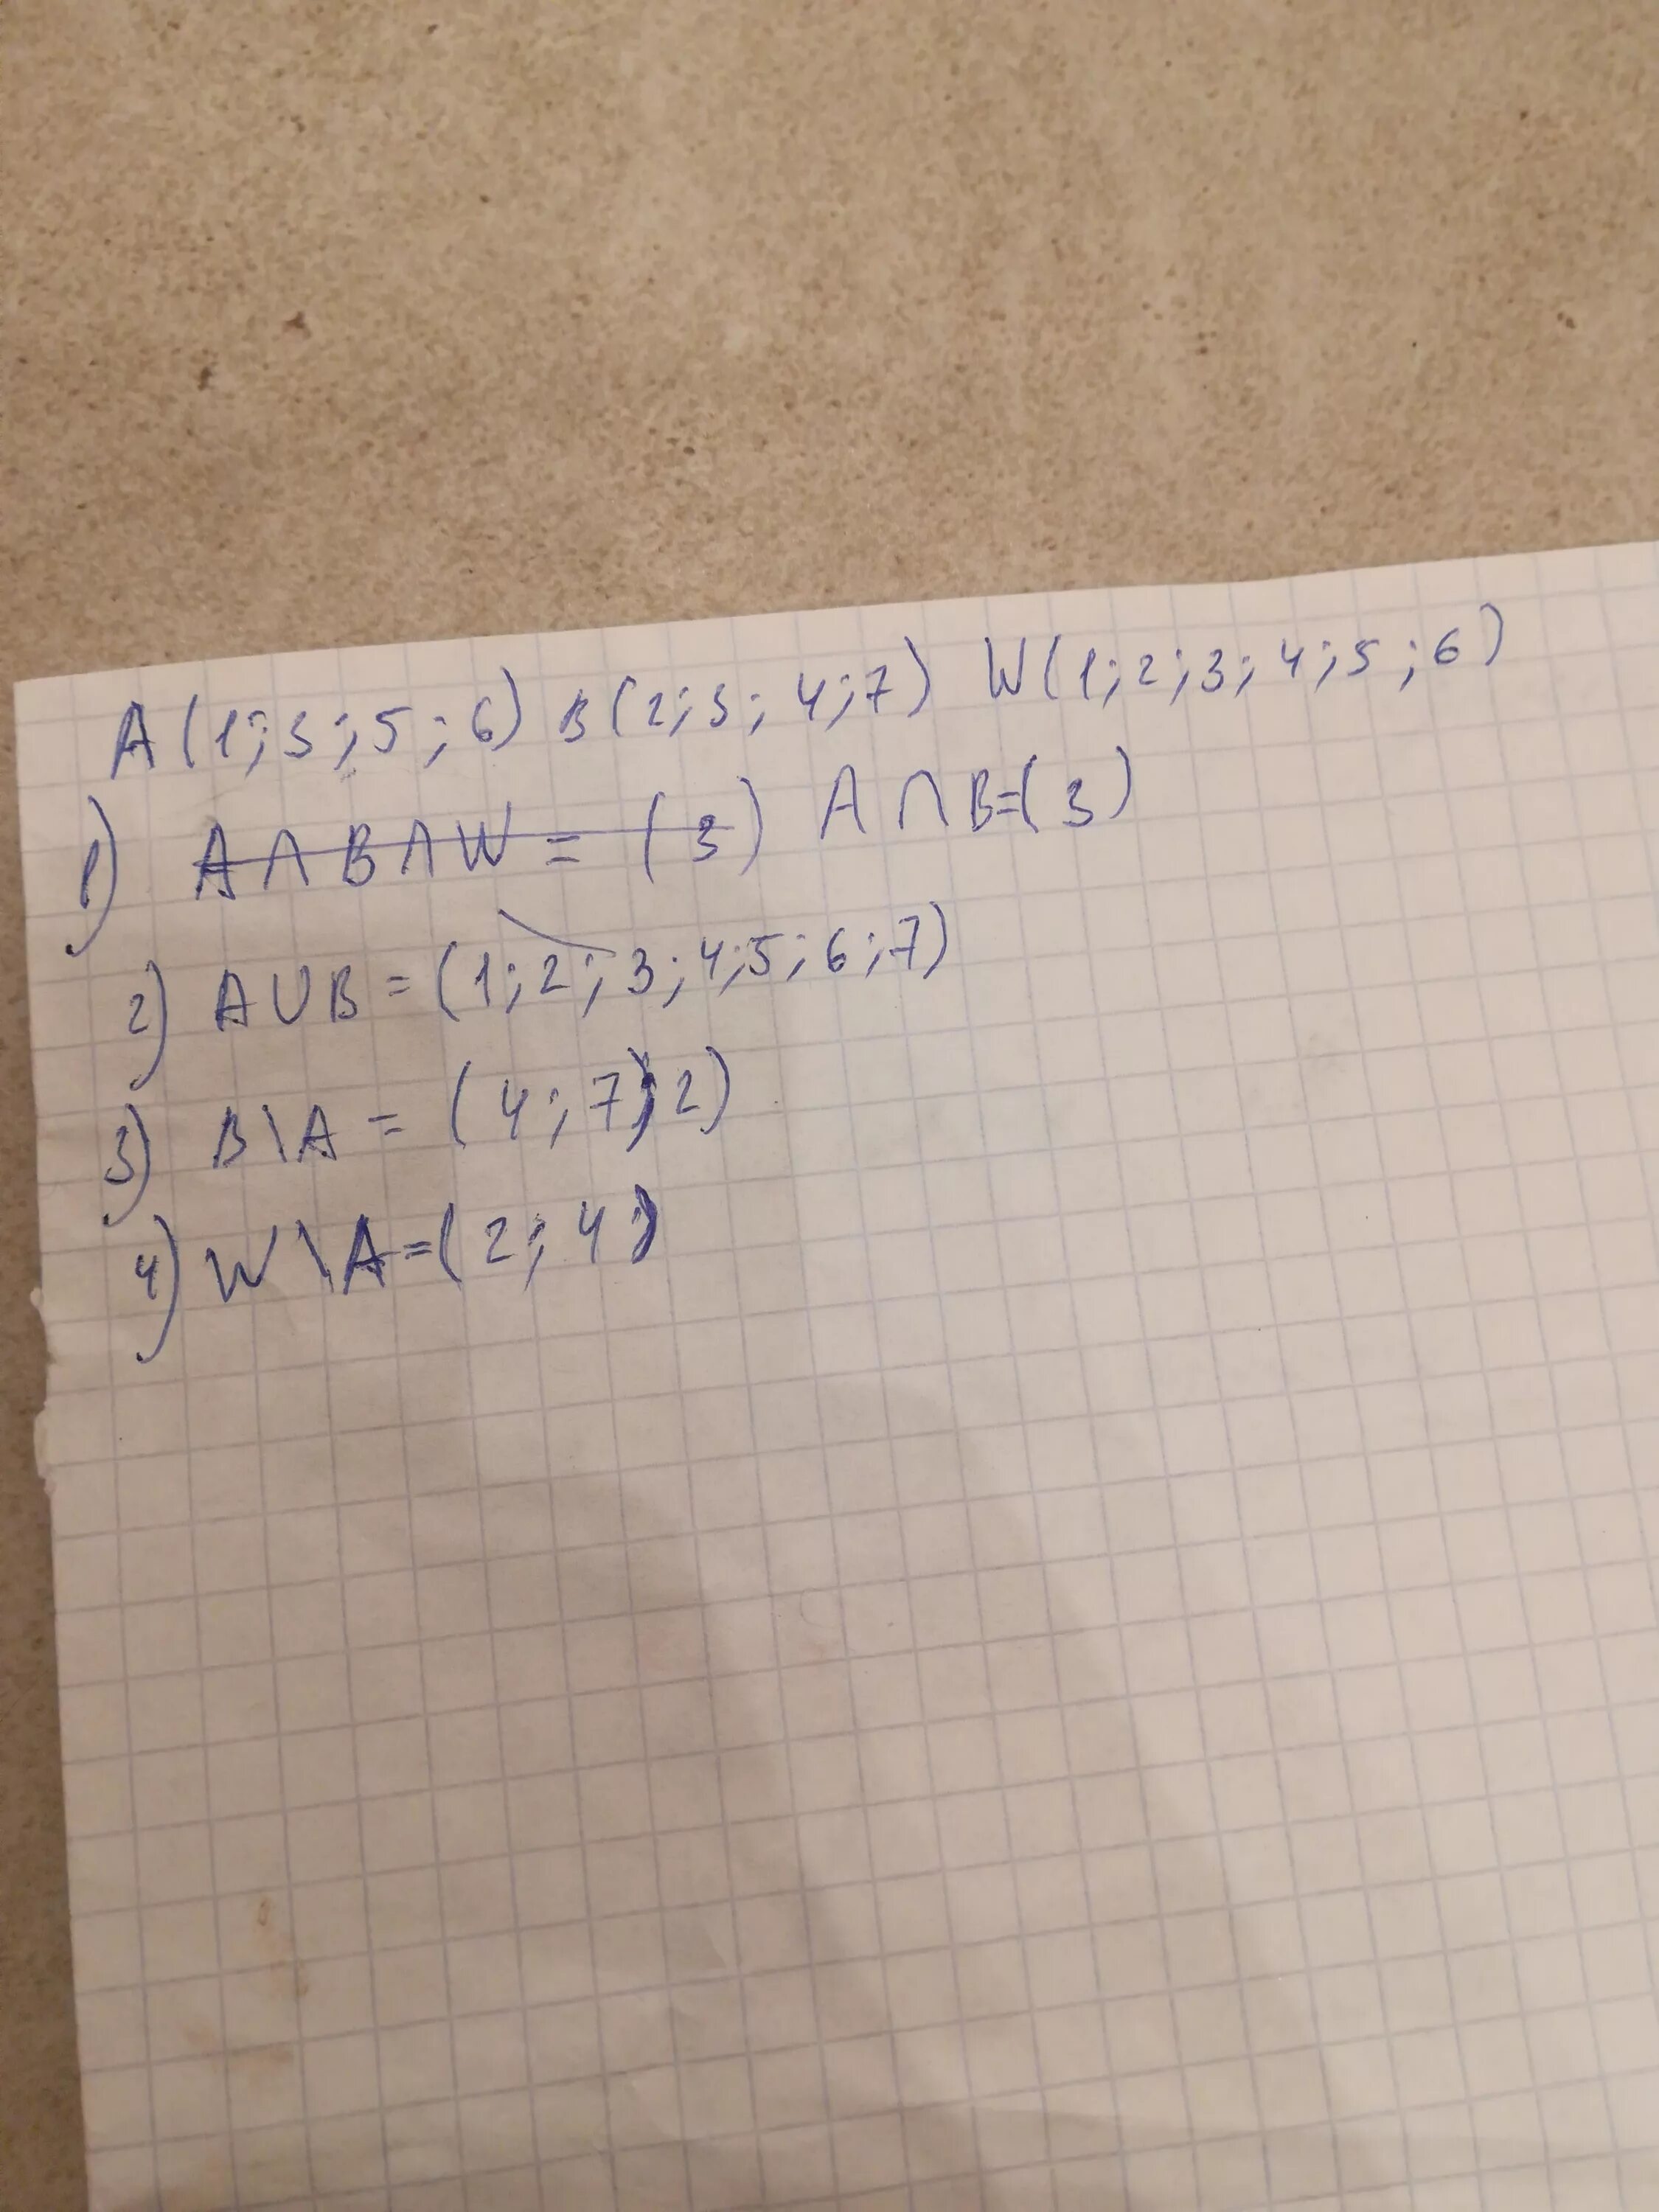 A (1; 3; 5; 6) B (2; 3; 4; 7) W (1; 2; 3; 4; 5; 6)
1) A ∩ B ∩ W = (3) A ∩ B = (3)
2) A ∪ B = (1; 2; 3; 4; 5; 6; 7)
3) B \ A = (4; 7; 2)
4) W \ A = (2; 4)